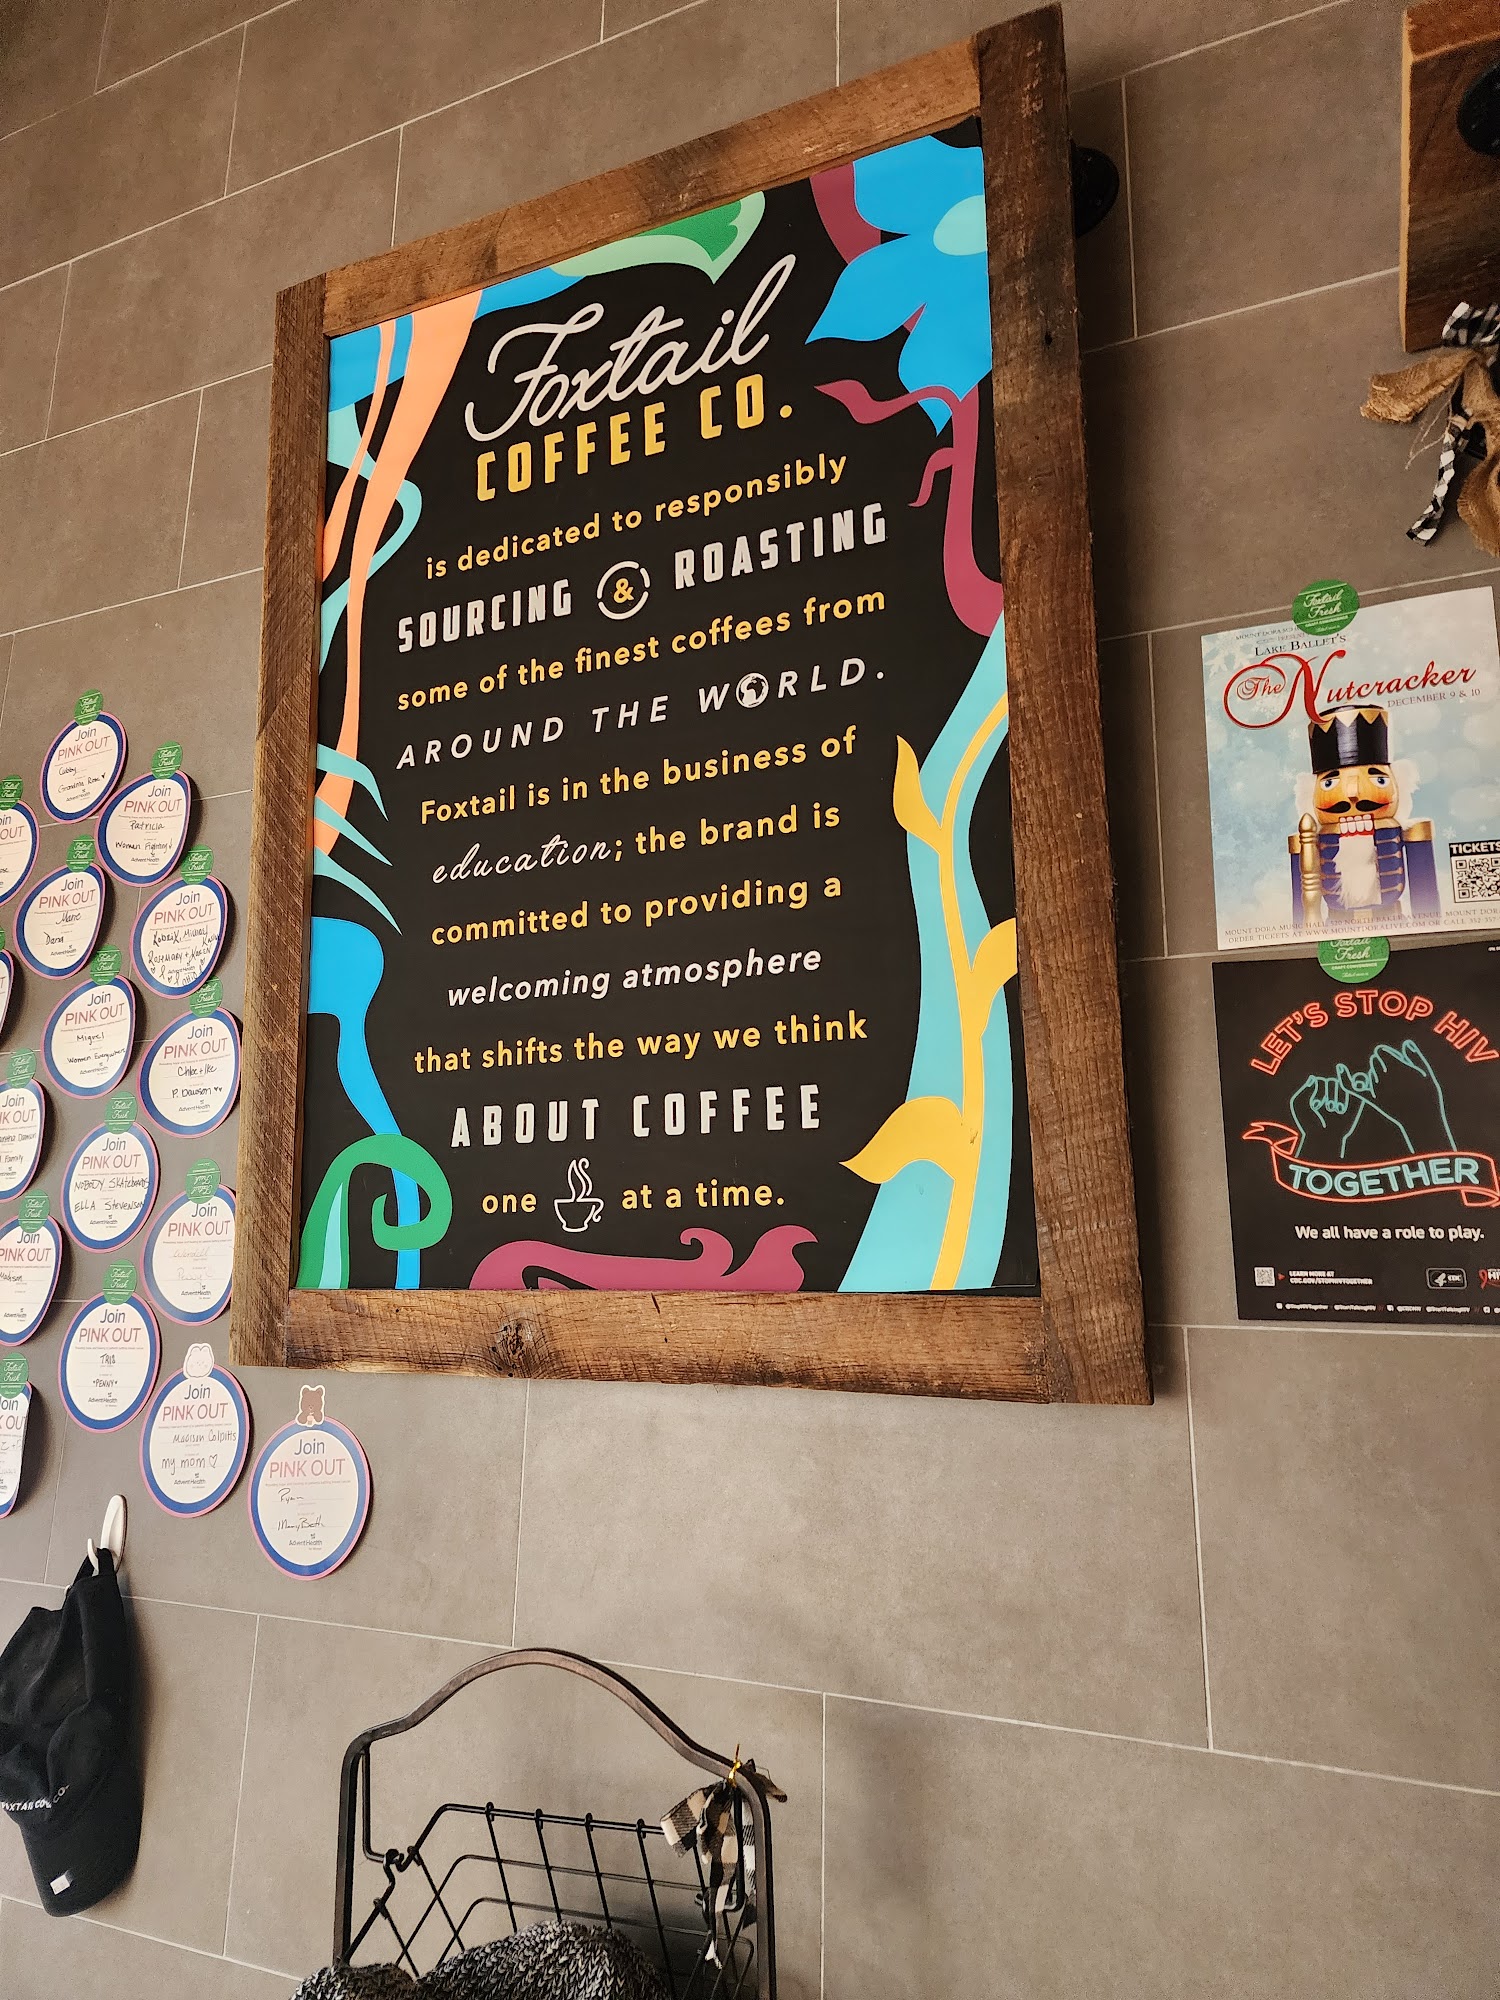 Foxtail
COFFEE CO.
is dedicated to responsibly
SOURCING & ROASTING
some of the finest coffees from
AROUND THE WORLD.
Foxtail is in the business of
education; the brand is
committed to providing a
welcoming atmosphere
that shifts the way we think
ABOUT COFFEE
one at a time.
Join
PINK OUT
Grandma Rose
AdventHealth
Join
PINK OUT
Patricia
Women Fighting
AdventHealth
Join
PINK OUT
Dana
AdventHealth
Join
PINK OUT
Join
PINK OUT
Miguel
Women Everywhere
AdventHealth
Join
PINK OUT
Chloe + Ike
P. Dawson
AdventHealth
Join
PINK OUT
NOBODY SKATEBOARDS
ELLA STEVENSON
AdventHealth
Join
PINK OUT
AdventHealth
Join
PINK OUT
TRIS
"PENNY"
AdventHealth
Join
PINK OUT
Madison Colpitts
my mom
AdventHealth
Join
PINK OUT
Ryan
MaryBeth
AdventHealth
Madison
Family
Foxtail
Fresh
CRAFT CONVENIENCE
LAKE BALLET'S
The Nutcracker
DECEMBER 9 & 10
TICKETS
MOUNT DORA MUSIC HALL, 520 NORTH BAKER AVENUE, MOUNT DORA
ORDER TICKETS AT WWW.MOUNTDORALIVE.COM OR CALL 352
Foxtail
Fresh
CRAFT CONVENIENCE
LET'S STOP HIV
TOGETHER
We all have a role to play.
LEARN MORE AT
CDC.GOV/STOPHIVTOGETHER
CDC